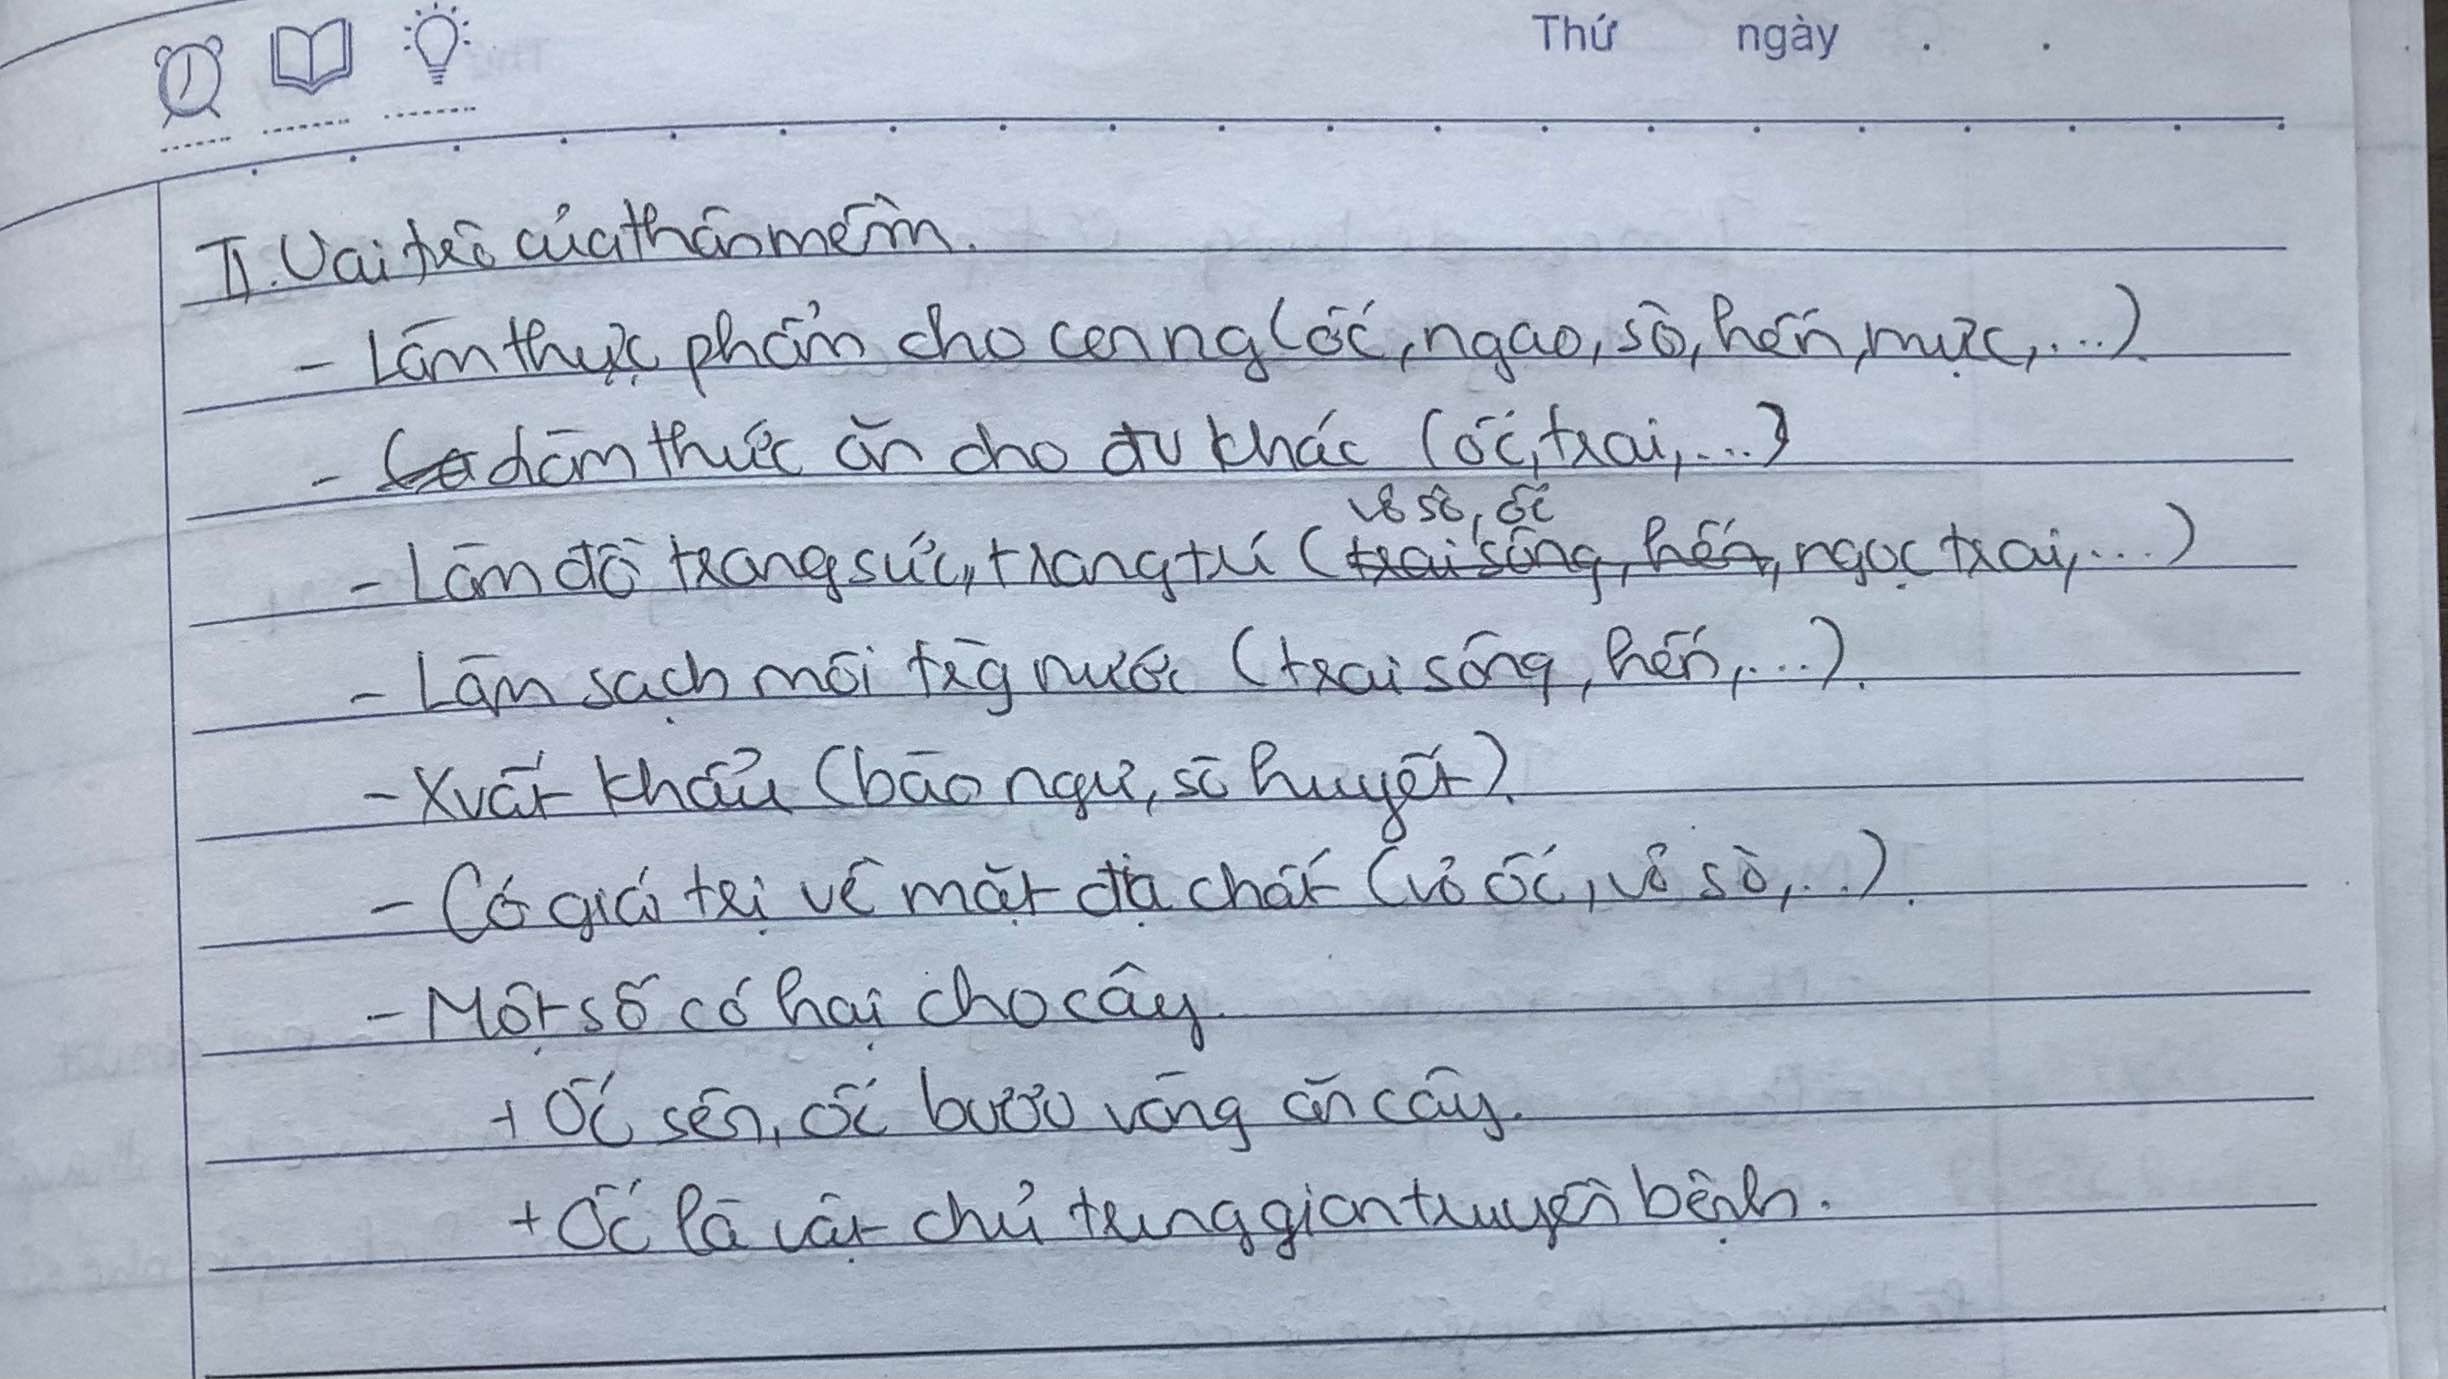 Thứ ngày . .
II. Vai trò của thân mềm.
- Làm thực phẩm cho con ng (ốc, ngao, sò, hến, mực,...).
- làm thức ăn cho đv khác (ốc, trai,...)
vỏ sò, ốc
- Làm đồ trang sức, trang trí (trai sông, hến, ngọc trai,...)
- Làm sạch môi trg nước (trai sông, hến,...).
- Xuất khẩu (bào ngư, sò huyết).
- Có giá trị về mặt địa chất (vỏ ốc, vỏ sò,...).
- Một số có hại cho cây
+ Ốc sên, ốc bươu vàng ăn cây.
+ Ốc là vật chủ trung gian truyền bệnh.